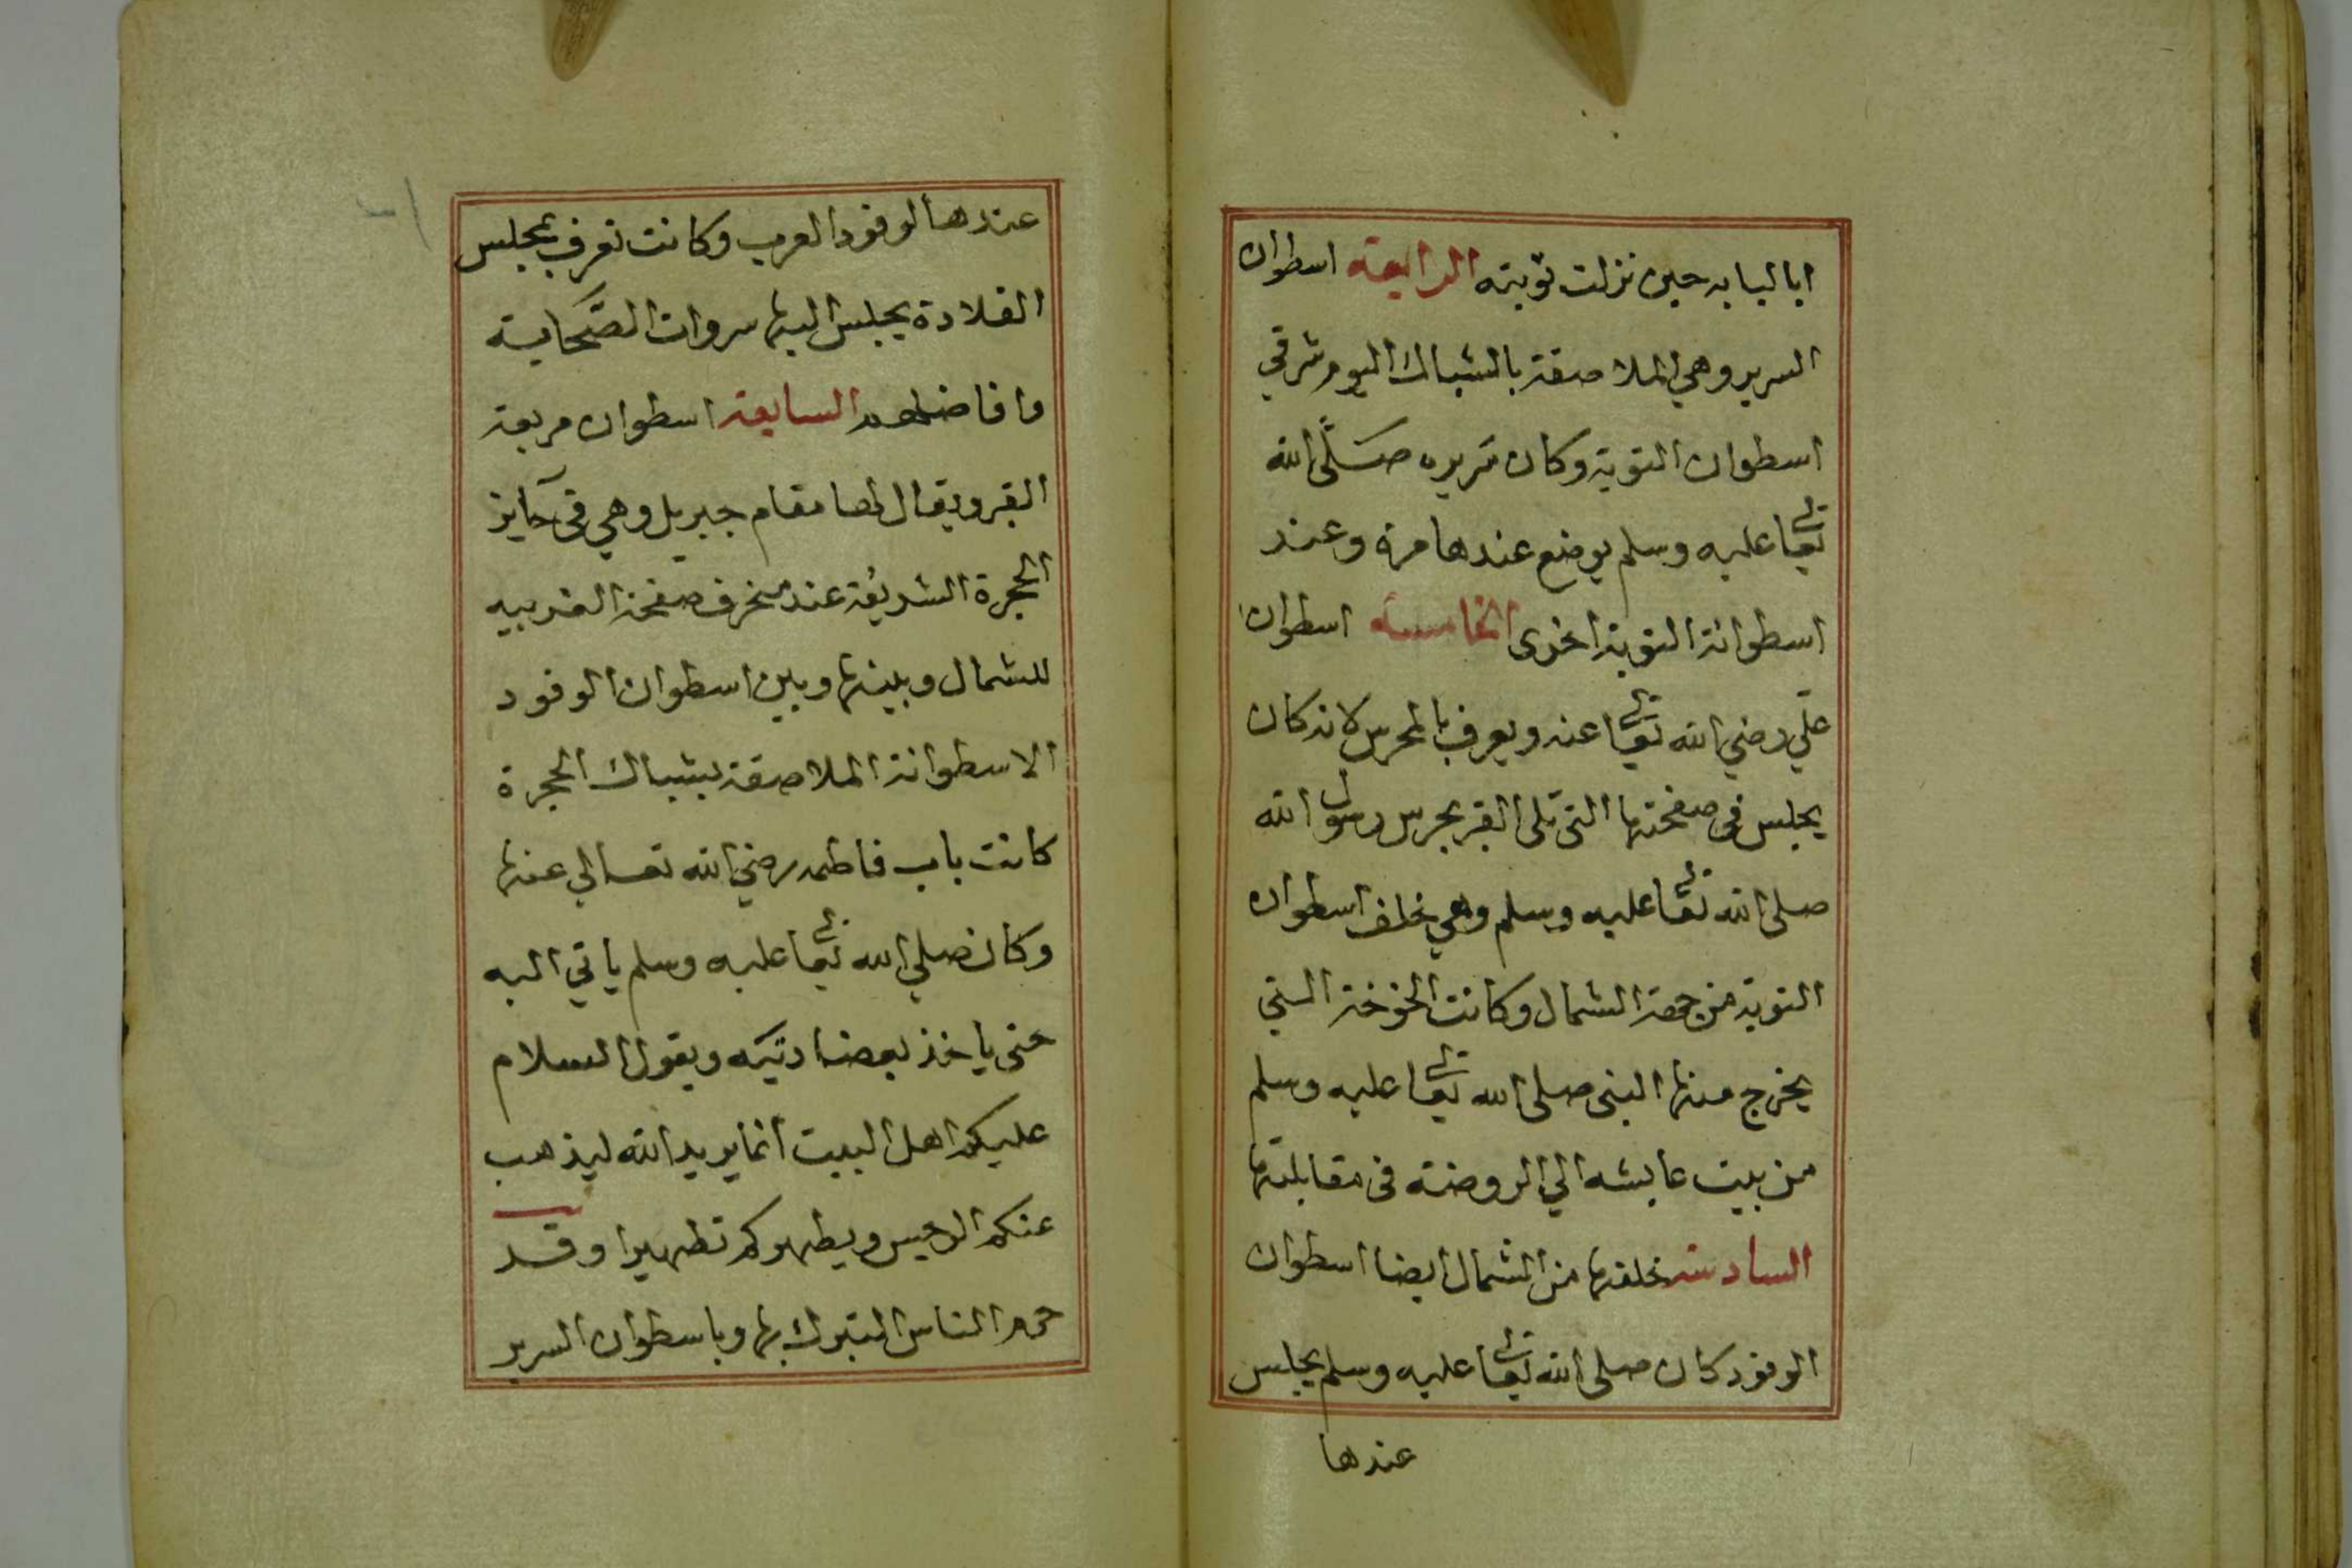 ابا لبابه حين نزلت توبته الرابعة اسطوان
السرير وهي الملاصقة بالشباك اليوم شرقي
اسطوان التوبة وكان سريره صَلَّى الله
تعالى عليه وسلم يوضع عندها مرة وعند
اسطوانة التوبة اخرى الخامسة اسطوان
علّي رضي الله تعالى عنه ويعرف بالمحرس لانه كان
يجلس في صفحتها التي تلى القبر يحرس رسول الله
صلى الله تعالى عليه وسلم وهي خلف اسطوان
التوبة من جهة الشمال وكانت الخوخة التي
يخرج منها النبى صلى الله تعالى عليه وسلم
من بيت عايشه الي الروضة فى مقابلتها
السادسة خلفها من الشمال ايضا اسطوان
الوفود كان صلى الله تعالى عليه وسلم يجلس
عندها
عندها لوفود العرب وكانت تعرف بمجلس
القلادة يجلس اليها سروات الصَّحَابة
وافاضلهم السابعة اسطوان مربعة
القبر ويقال لها مقام جبريل وهي في حَايز
الحجرة الشريفة عند منحرف صفحة الغربيه
للشمال وبينها وبين اسطوان الوفود
الاسطوانة الملاصقة بشباك الحجرة
كانت باب فاطمه رضي الله تعالي عنها
وكان صلي الله تعالى عليه وسلم ياتي اليه
حتى ياخذ بعضادتيَه ويقول السلام
عليكم اهل البيت انما يريد الله ليذهب
عنكم الرجس ويطهركم تطهيرا وقد
حرم الناس التبرك بها وباسطوان السرير